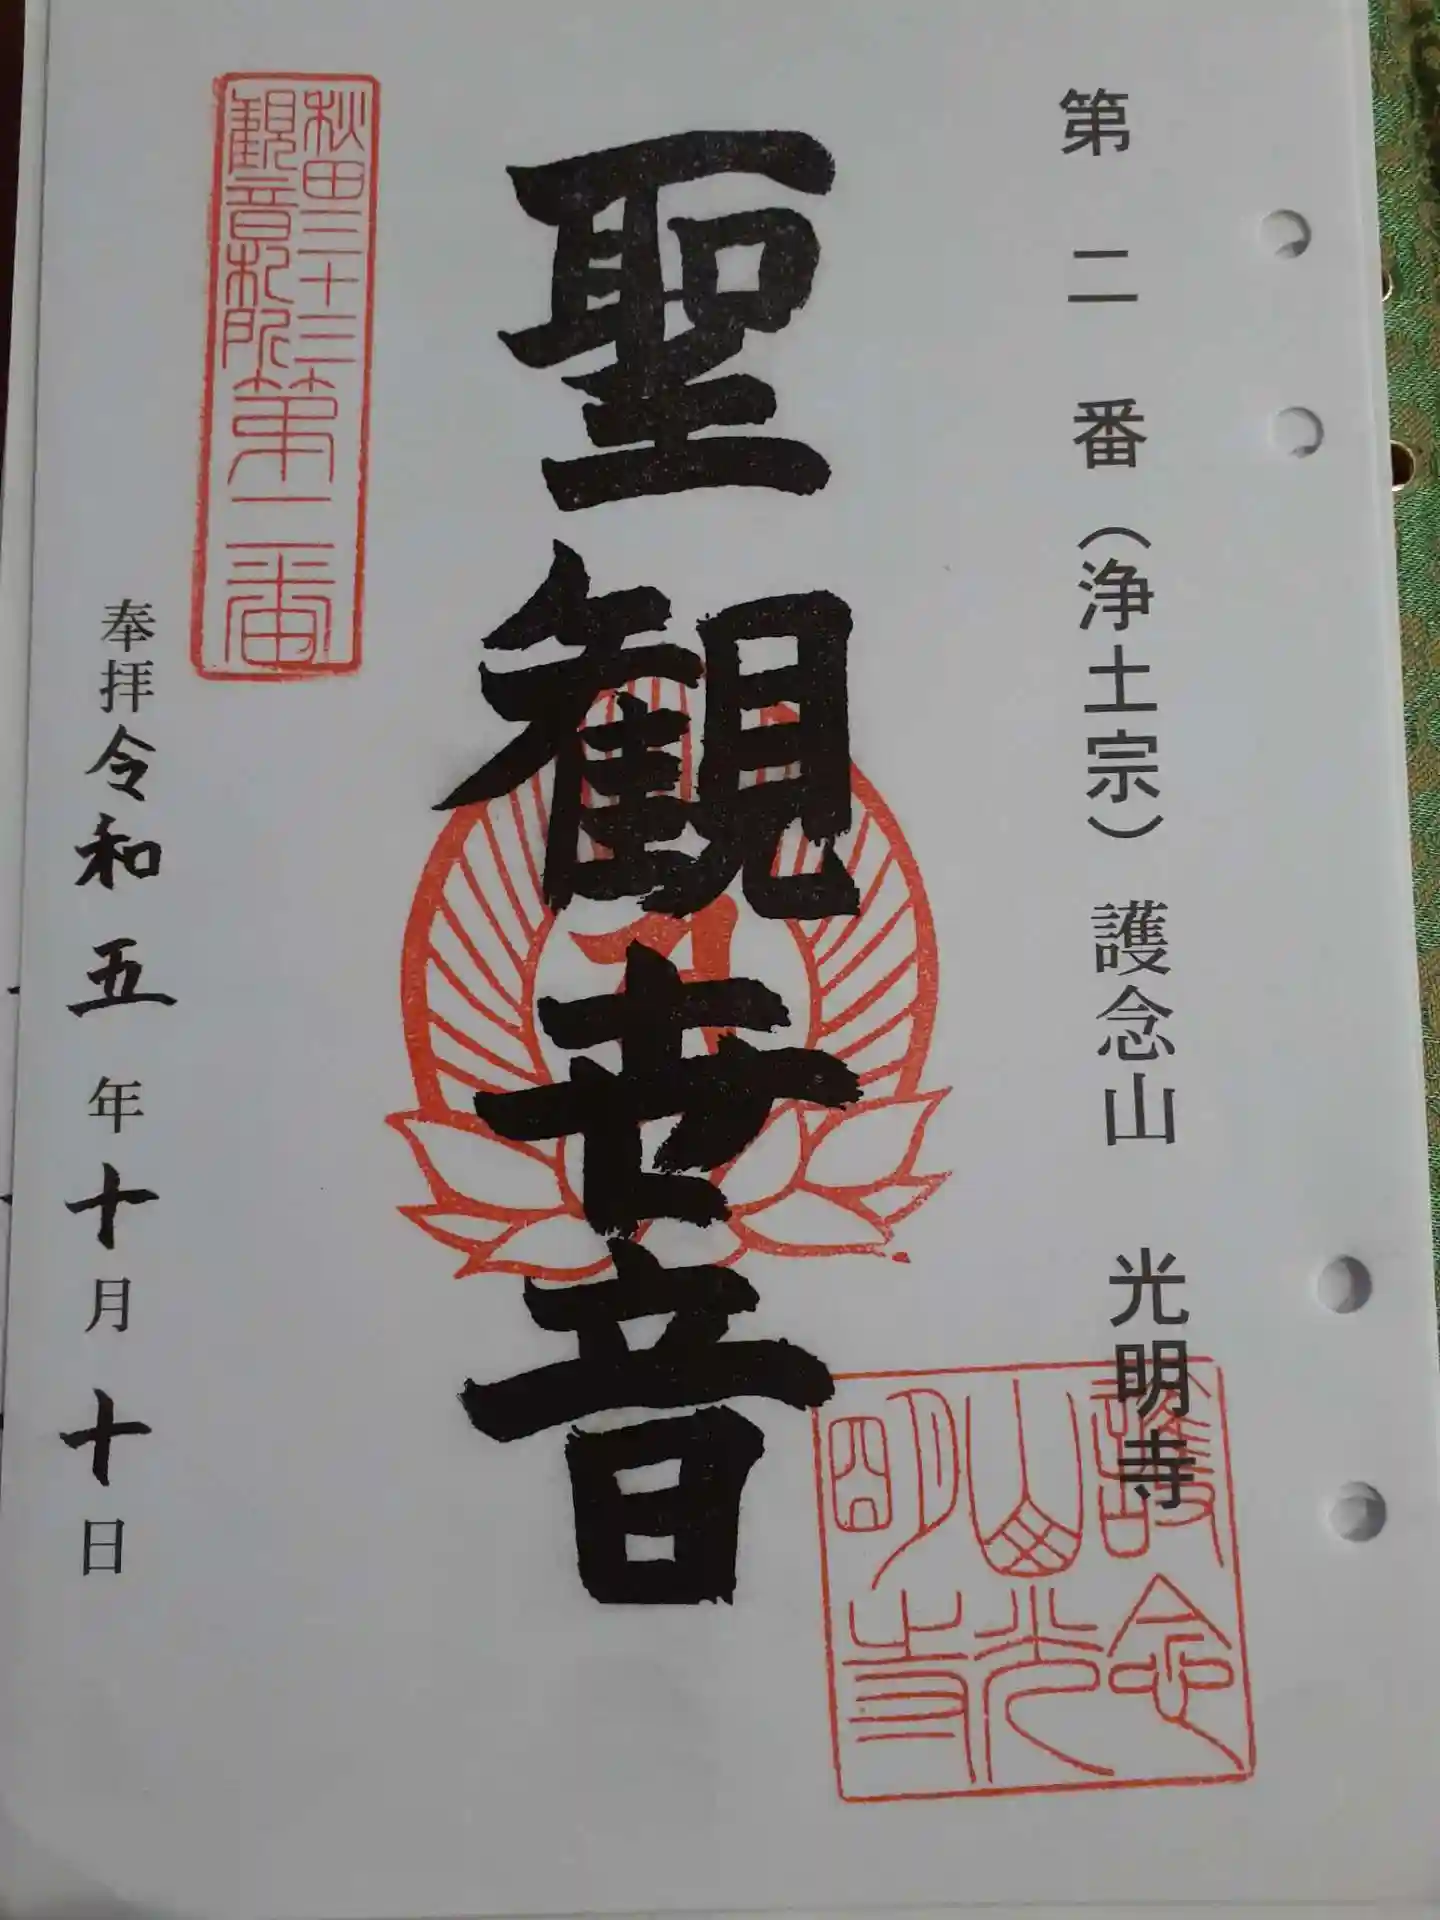 第二番（浄土宗）護念山　光明寺
聖観世音
秋田三十三
観音札所
第二番
奉拝令和五年十月十日
護念
山光
明寺